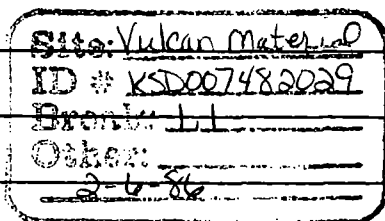 Site: Vulcan Material
ID # KSD007482029
Break: 11
Other:
2-6-86